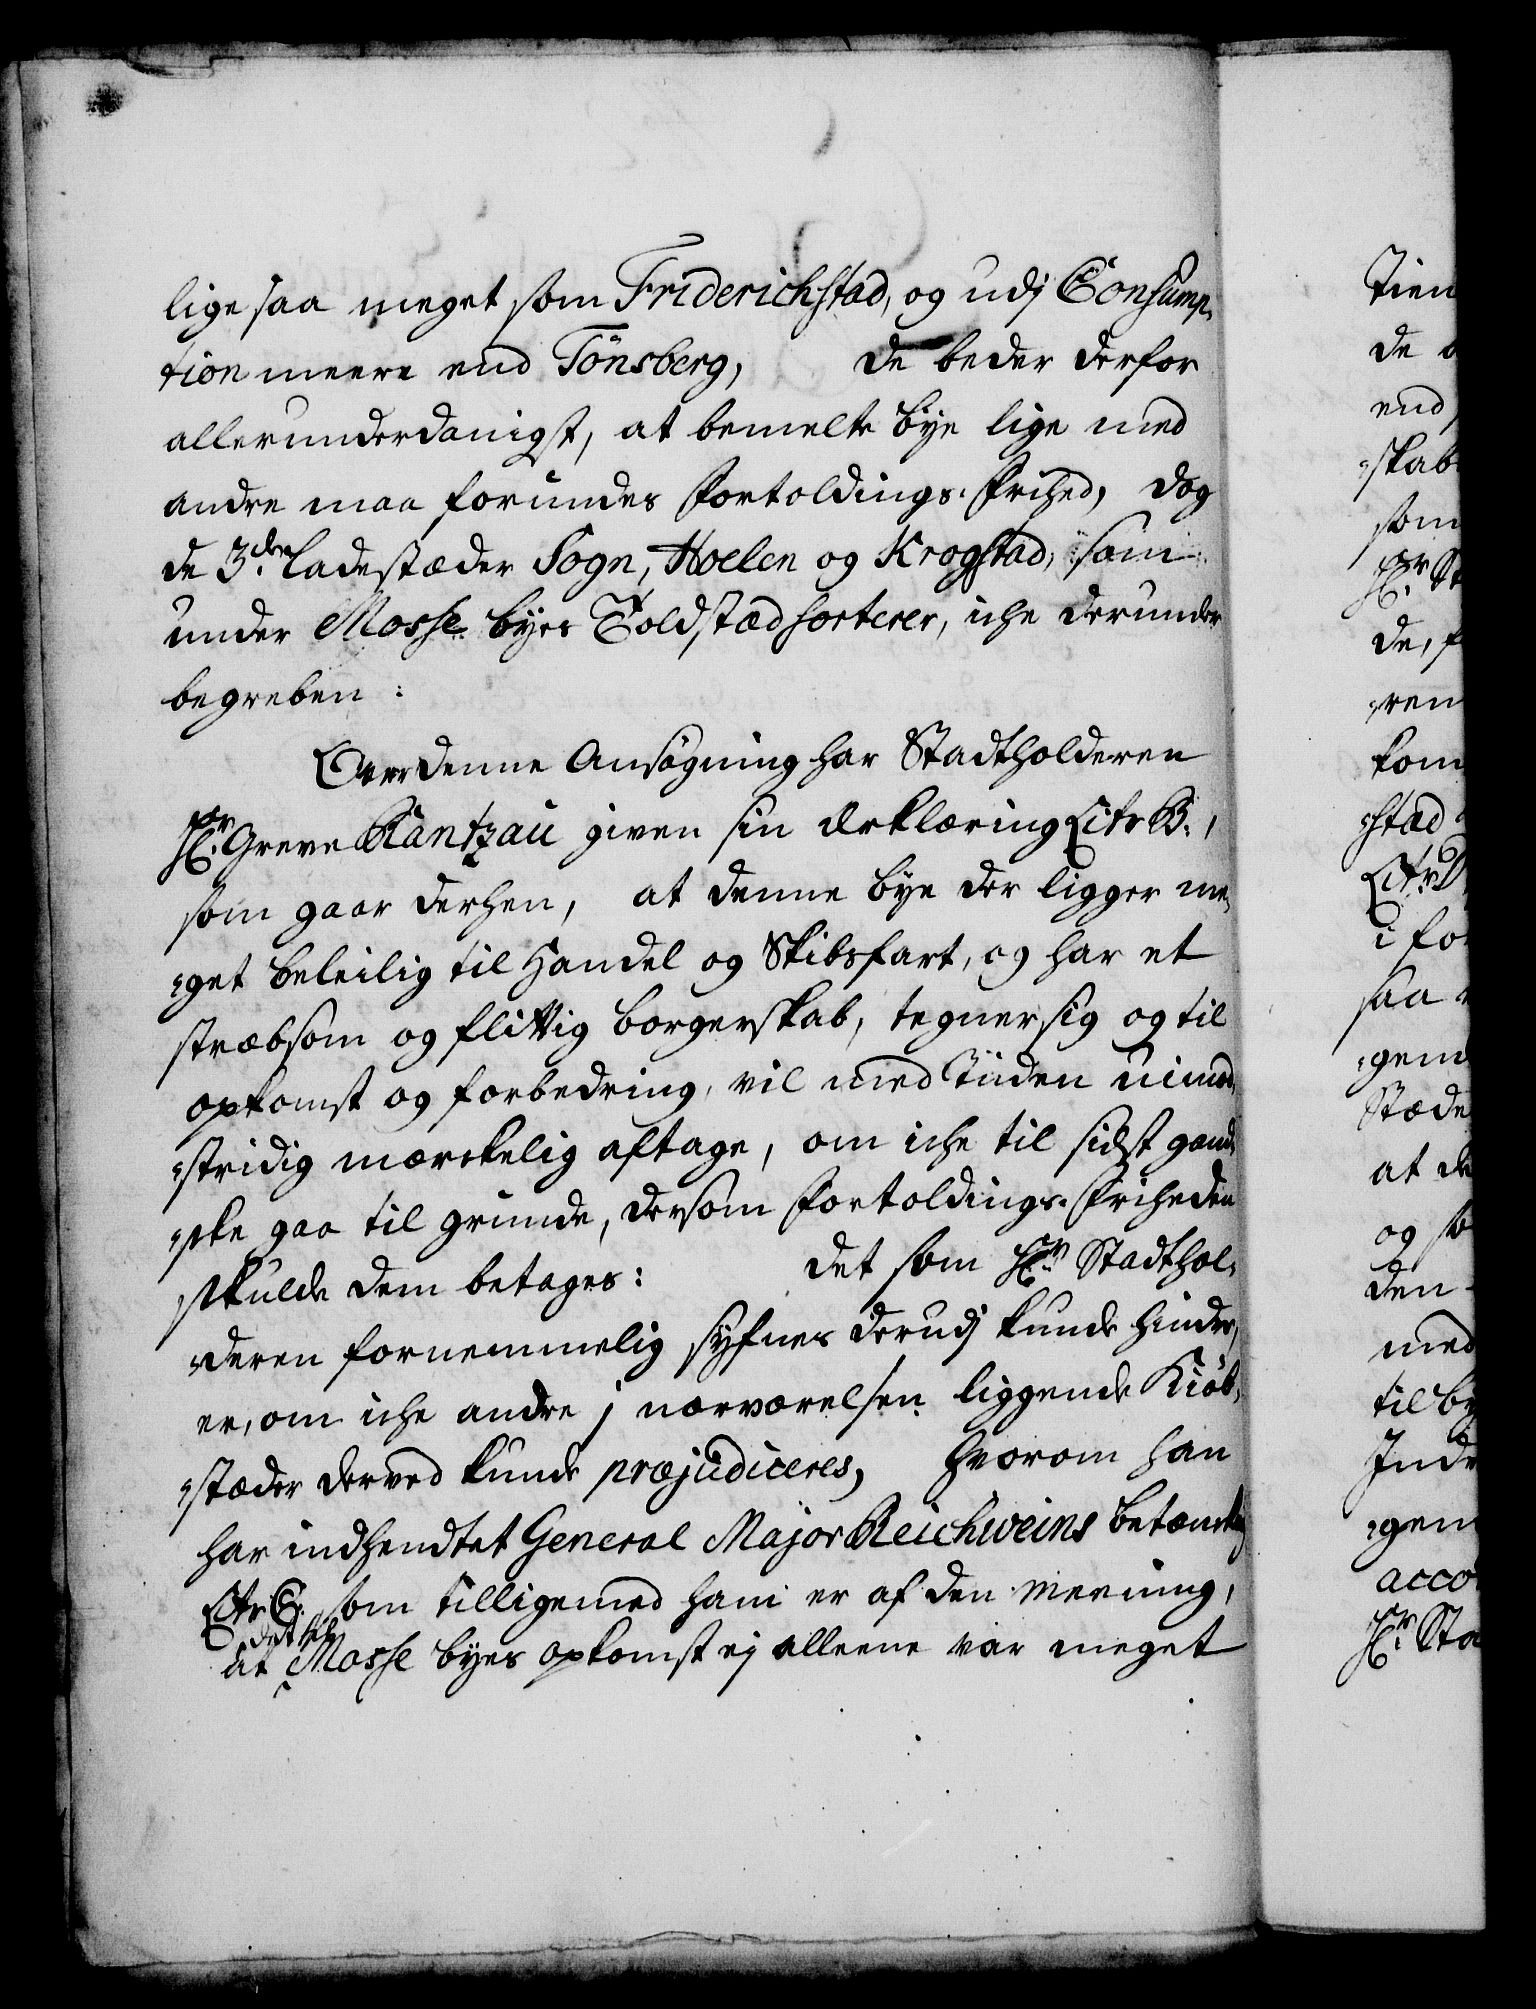 lige saa meget som Friderichstad, og udj Consump-
tion meere end Tönsberg, de beder derfor
allerunderdanigst, at bemelte bye lige med
andre maa forundes Fortoldings-Frihed, dog
de 3de Ladestæder Sogn, Hoelen og Krogstad, som
under Mosse byes Toldstæd sorterer, iche derunder
begreben:
Over denne Ansögning har Stadtholderen
Hr. Greve Rantzau given sin Erklæring Litr B.,
som gaar derhen, at denne bye der ligger me-
get beleilig til Handel og Skibsfart, og har et
stræbsom og flittig borgerskab, tegner sig og til
opkomst og forbedring, vil med Tiiden uimod-
stridig mærckelig aftage, om iche til sidst gand-
ske gaa til grunde, dersom Fortoldings-Friheden
skulde dem betages: det som Hr. Stadthol-
deren fornemmelig syfnes derudj kunde hindre,
er, om iche andre j nærværelsen liggende Kiöb-
stæder derved kunde præjudiceres, hvorom han
har indhendtet General Major Reichweins betænk
Litr C. som tilligemed ham er af den Meening,
at Mosse byes opkomst ej alleene var meget
Tien
de
end
skab
som
Hr. St
de, f
ren
kom
stad
Litr D
i for
saa
gem
Stæde
at de
og so
den
med
til by
Inde
gem
acco
Hr. Sta